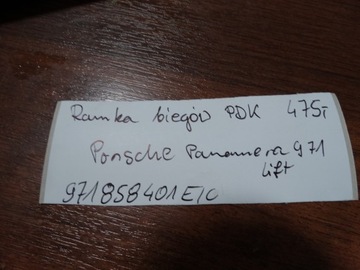 Ramka biegów PDK 475,-
Porsche Panamera 971
lift
971858401E1C